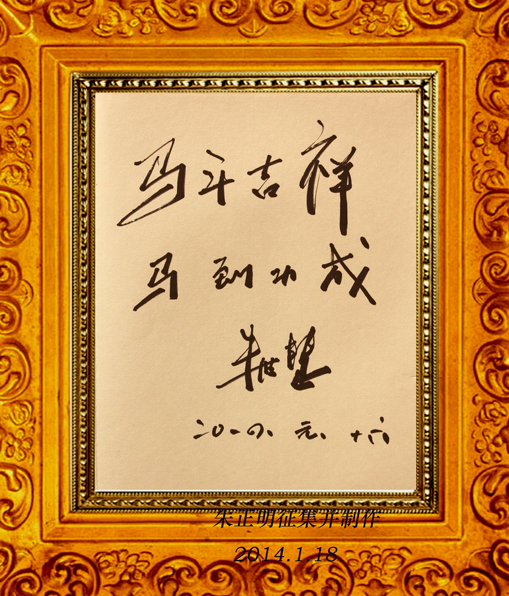 马年吉祥
马到功成
朱世慧
二〇一四、元、十六
朱正明征集并制作
2014.1.18